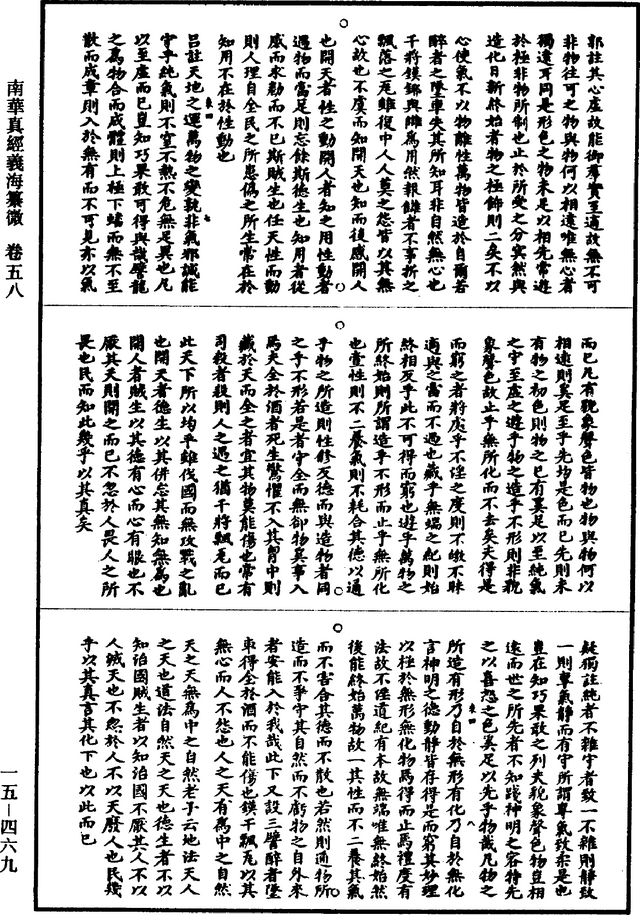 南華真經義海纂微 卷五八
一五—四六九
郭註其心虛故能御羣實至適故無不可
非物往可之物與物何以相遠唯無心者
獨遠耳同是形色之物未足以相先常遊
於極非物所制也止於所受之分冥然與
造化日新終始者物之極飾則二矣不以
心使氣不以物離性萬物皆造於自爾若
醉者之墜車失其所知耳非自然無心也
干將鏌鋣與雠為用然報雠者不事折之
飄落之瓦雖復中人人莫之怨皆以其無
心故也不慮而知開天也知而後感開人
也開天者性之動開人者知之用性動者
遇物而當足則忘餘斯德生也知用者從
感而求勌而不已斯賊生也任天性而動
則人理自全民之所患偽之所生常在於
知用不在於性動也
呂註天地之運萬物之變孰非氣邪誠能
守乎純氣則不窒不熱不危無足異也凡
以至虛而已豈知巧果敢可得與哉譬龍
之為物合而成體則上極下蟠而無不至
散而成章則入於無有而不可見亦以氣
而已凡有貌象聲色皆物也物與物何以
相遠則奚足至乎先均是色而已先則未
有物之初色則物之已有奚足以至純氣
之守至虛之遊乎物之造乎不形則非貌
象聲色故止乎無所化而不去矣夫得是
而窮之者將處乎不淫之度則不皦不昧
適與之當而不過也藏乎無端之紀則始
終相反乎此不可得而窮也遊乎萬物之
所終始則所謂造乎不形而止乎無所化
也壹性則不二養氣則不耗合其德以通
乎物之所造則性修反德而與造物者同
之乎不形若是者守全而無郤物奚事入
焉夫全於酒者死生驚懼不入其胷中則
藏於天而全之者宜其物莫能傷也常有
司殺者殺則人之遇之猶干將飄瓦而已
此天下所以均平雖伐國而無攻戰之亂
也開天者德生以其併忘其無知無為也
開人者賊生以其德有心而心有眼也不
厭其天則開之而已不忽於人畏人之所
畏也民而知此幾乎以其真矣
疑獨註純者不雜守者致一不雜則靜致
一則專氣靜而有守所謂專氣致柔是也
豈在知巧果敢之列夫貌象聲色物豈相
遠而世之所先者不知踐神明之容特先
之以喜怒之色奚足以先乎物哉凡物之
所造有形乃自於無形有化乃自於無化
言神明之德動靜皆存得是而窮其妙理
以極於無形無化物焉得而止焉禮度有
法故不淫道紀有本故無端唯無終始然
後能終始萬物故一其性而不二養其氣
而不害合其德而不散也若然則通物所
造而不爭守其自然而不虧物之自外來
者安能入於我哉此下又設三譬醉者墜
車得全於酒而不能傷也鏌干飄瓦以其
無心而人不怨也人之天有為中之自然
天之天無為中之自然老子云地法天人
之天也道法自然天之天也德生者不以
知治國賊生者以知治國不厭其人不以
人滅天也不忽於人不以天廢人也民幾
乎以其真言其化下也以此而已